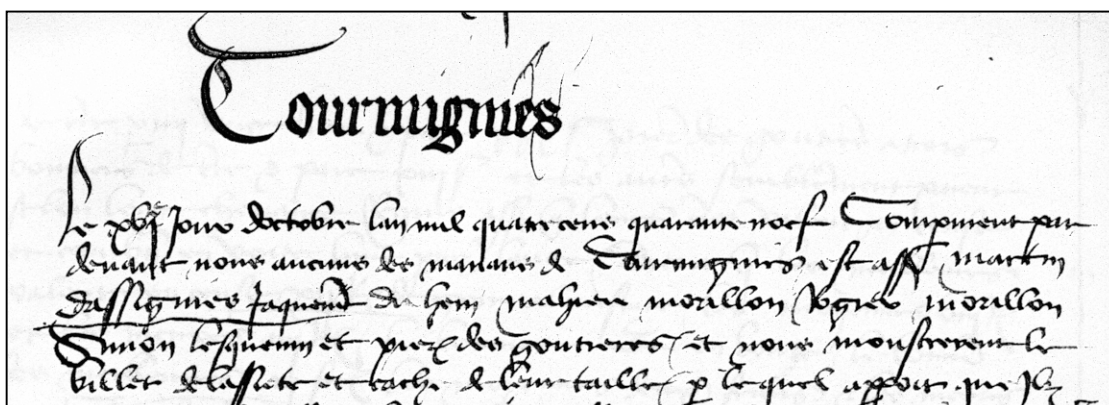 Tourmignies
Le xvje Jour doctobre lan mil quatre cens quarante noef Comparment par
devant nous aucuns des manans de Tourmignies est ass martin
dassignies Jaquemd du hem mahieu morillon morillon
Simon lesquemn et pierx des goutieres et nous monstrerent le
billet de lassiete et cache de leur taille p lequel appoit que Ilz